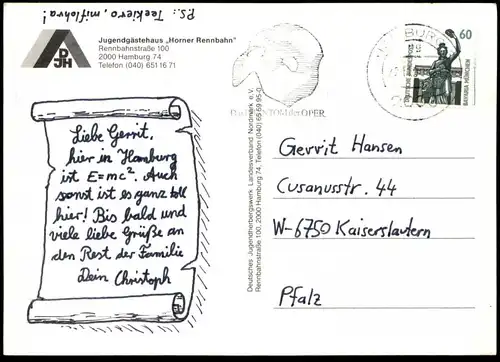 P.S.: Teekiero, mitlohra!
DJH
Jugendgästehaus „Horner Rennbahn"
Rennbahnstraße 100
2000 Hamburg 74
Telefon (040) 651 16 71
Liebe Gerrit,
hier in Hamburg
ist E=mc². Auch
sonst ist es ganz toll
hier! Bis bald und
viele liebe Grüße an
den Rest der Familie
Dein Christoph
Deutsches Jugendherbergswerk, Landesverband Nordmark e.V.
Rennbahnstraße 100, 2000 Hamburg 74, Telefon (040) 65 69 95-0
DAS PHANTOM DER OPER
HAMBURG
60
DEUTSCHE BUNDESPOST
BAVARIA MÜNCHEN
Gerrit Hansen
Cusanusstr. 44
W-6750 Kaiserslautern
Pfalz